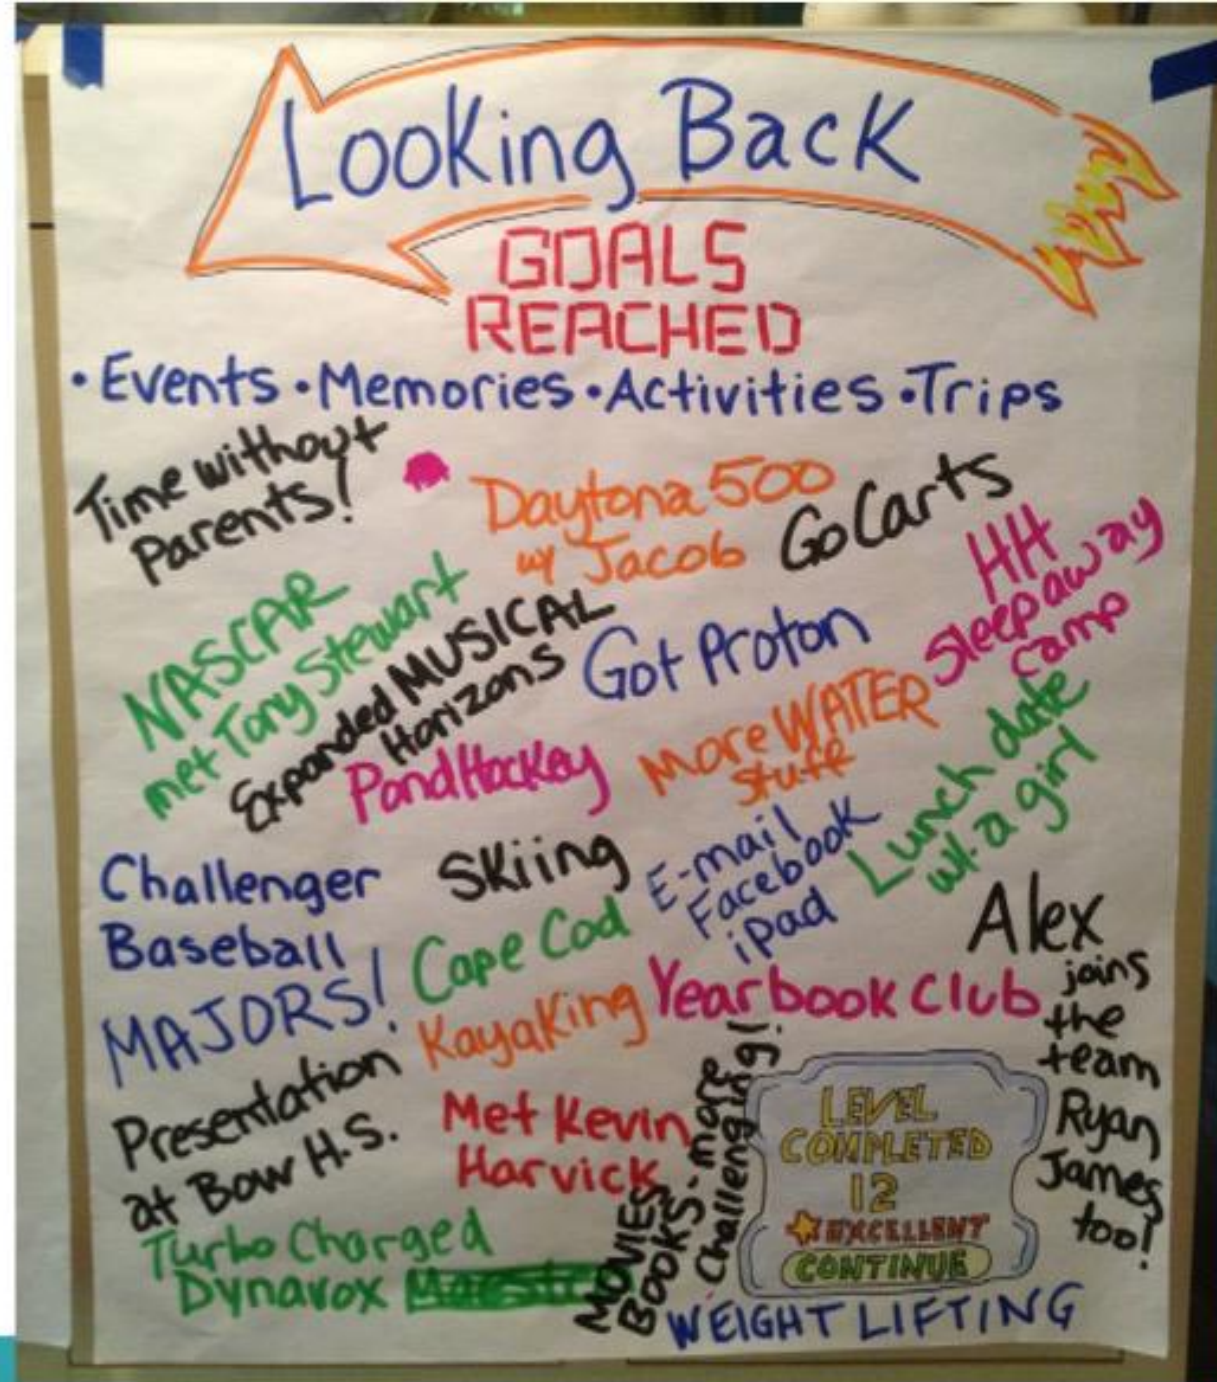 Looking Back
GOALS
REACHED
• Events • Memories • Activities • Trips
Time without
Parents!
Daytona 500
w/ Jacob
Go Carts
HH
Sleepaway
Camp
NASCAR
met Tony Stewart
Expanded MUSICAL
Horizons
Got Proton
Pond Hockey
More WATER
Stuff
Lunch date
w/. a girl
Challenger
Baseball
MAJORS!
Skiing
E-mail
Facebook
iPad
Cape Cod
Kayaking
Yearbook Club
Alex
joins
the
team
Ryan
James
too!
Presentation
at Bow H.S.
Met Kevin
Harvick
Turbo Charged
Dynavox
MOVIES
BOOKS - more
Challenging!
LEVEL
COMPLETED
12
EXCELLENT
CONTINUE
WEIGHT LIFTING